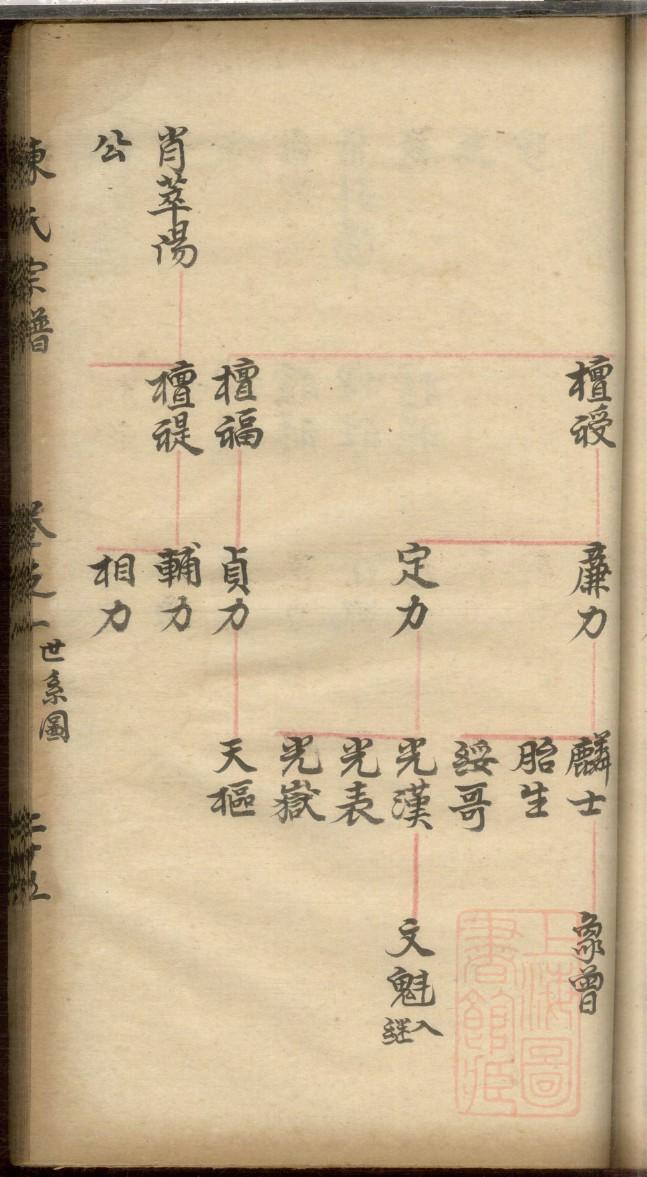 檀禐
廉力
麟士
象曾
胎生
綏哥
定力
光漢
文魁
入
継
光表
光嶽
檀福
貞力
天樞
肖萃陽
檀禔
輔力
公
相力
陳氏宗譜
卷之一
世系圖
上海圖
書館藏